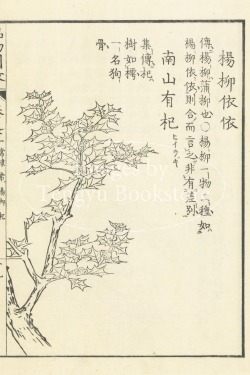 楊柳依依
傳楊柳蒲柳也〇楊柳一物二種如
楊柳依依則合而言之非有差別
南山有杞
ヒイラギ
集傳杞
樹如樗
一名狗
骨